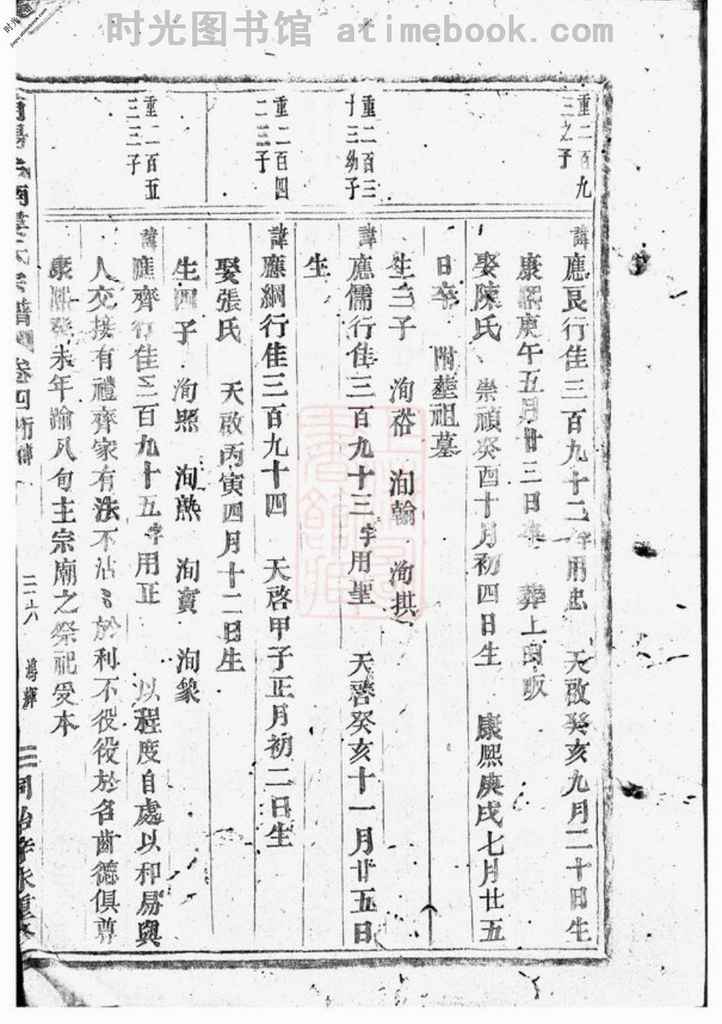 时光图书馆 atimebook.com
重二百九
三之子
重二百三
十三幼子
重二百四
二三子
重二百五
三三子
諱應良行佳三百九十二字用忠 天啟癸亥九月二十日生
康熙庚午五月廿三日卒 葬上
娶陳氏 崇禎癸酉十月初四日生 康熙庚戌七月廿五
日卒 附葬祖墓
生三子 洵裕 洵翰 洵拱
諱應儒行佳三百九十三字用聖 天啓癸亥十一月廿五日
生
諱應綱行佳三百九十四 天啓甲子正月初二日生
娶張氏 天啟丙寅四月十二日生
生四子 洵熙 洵 洵寳 洵象
諱應齊行佳三百九十五字用正 以程度自處以和易與
人交接有禮齊家有法不沾沾於利不役役於名齒德俱尊
康熙癸未年踰八旬主宗廟之祭祀受本
氏宗譜 卷四行傳
二六
同治 重